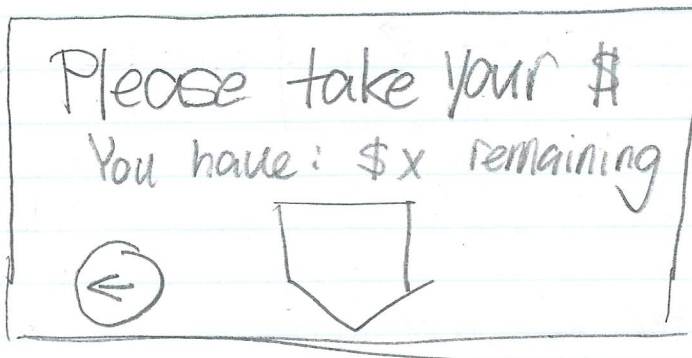 Please take your $
You have: $x remaining